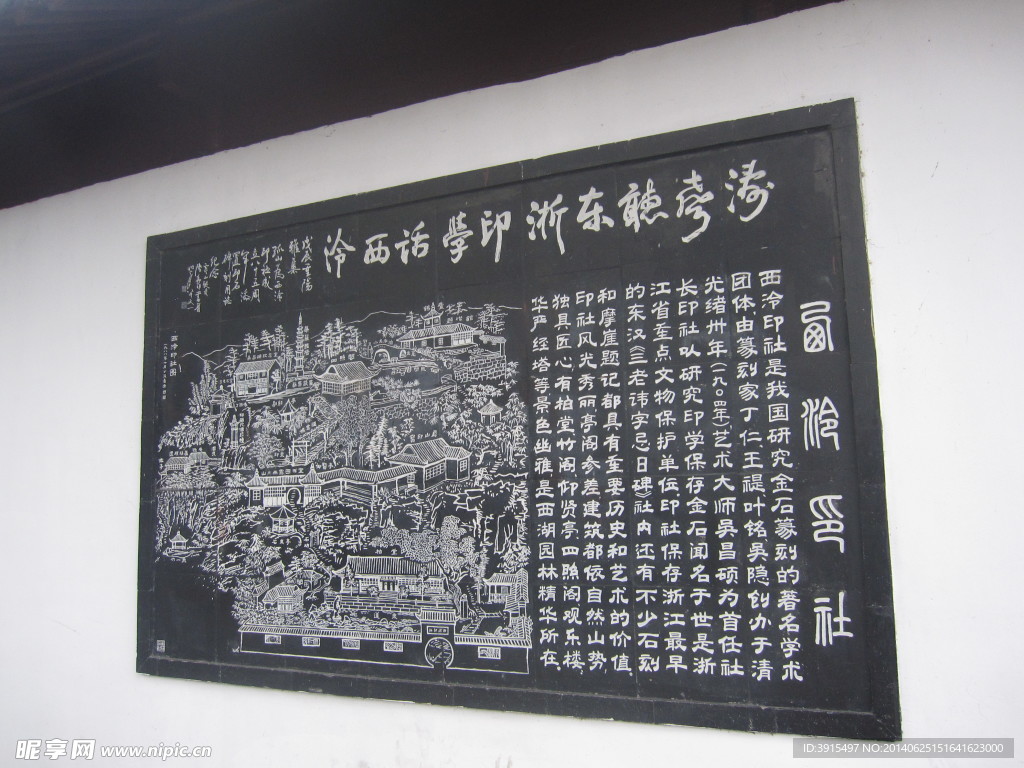 西泠印社
西泠印社是我国研究金石篆刻的著名学术
团体由篆刻家丁仁王禔叶铭吴隐创办于清
光绪卅年(一九〇四年)艺术大师吴昌硕为首任社
长印社以研究印学保存金石闻名于世是浙
江省重点文物保护单位印社保存浙江最早
的东汉《三老讳字忌日碑》社内还有不少石刻
和摩崖题记都具有重要历史和艺术的价值
印社风光秀丽亭阁参差建筑都依自然山势
独具匠心有柏堂竹阁仰贤亭四照阁观乐楼
华严经塔等景色幽雅是西湖园林精华所在
涛声听东浙印学话西泠
西泠印社图
昵享网 www.nipic.cn
ID:3915497 NO:20140625151641623000